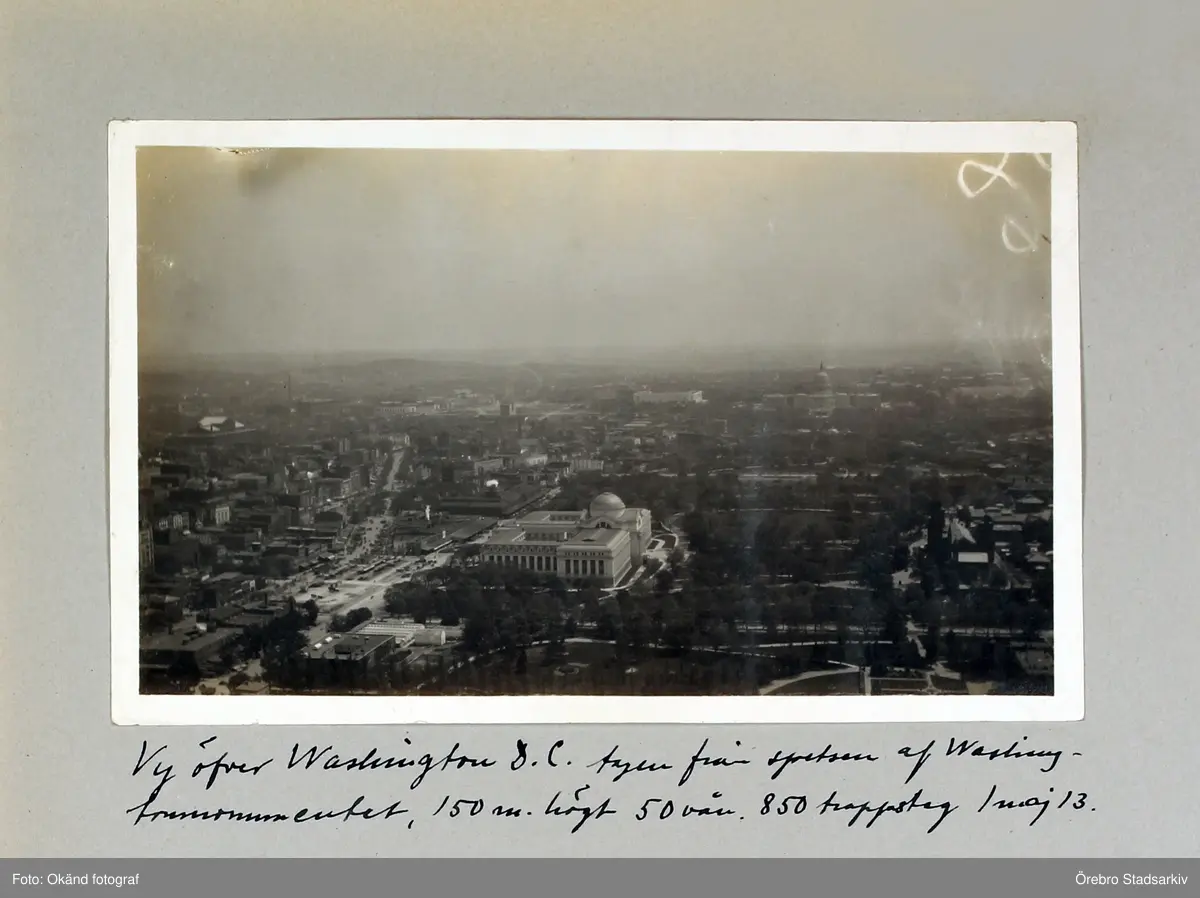 Vy öfver Washington D.C. tagen från spetsen af Washing-
tonmonumentet, 150 m. högt 50 vån. 850 trappsteg 1 maj 13.
Foto: Okänd fotograf
Örebro Stadsarkiv